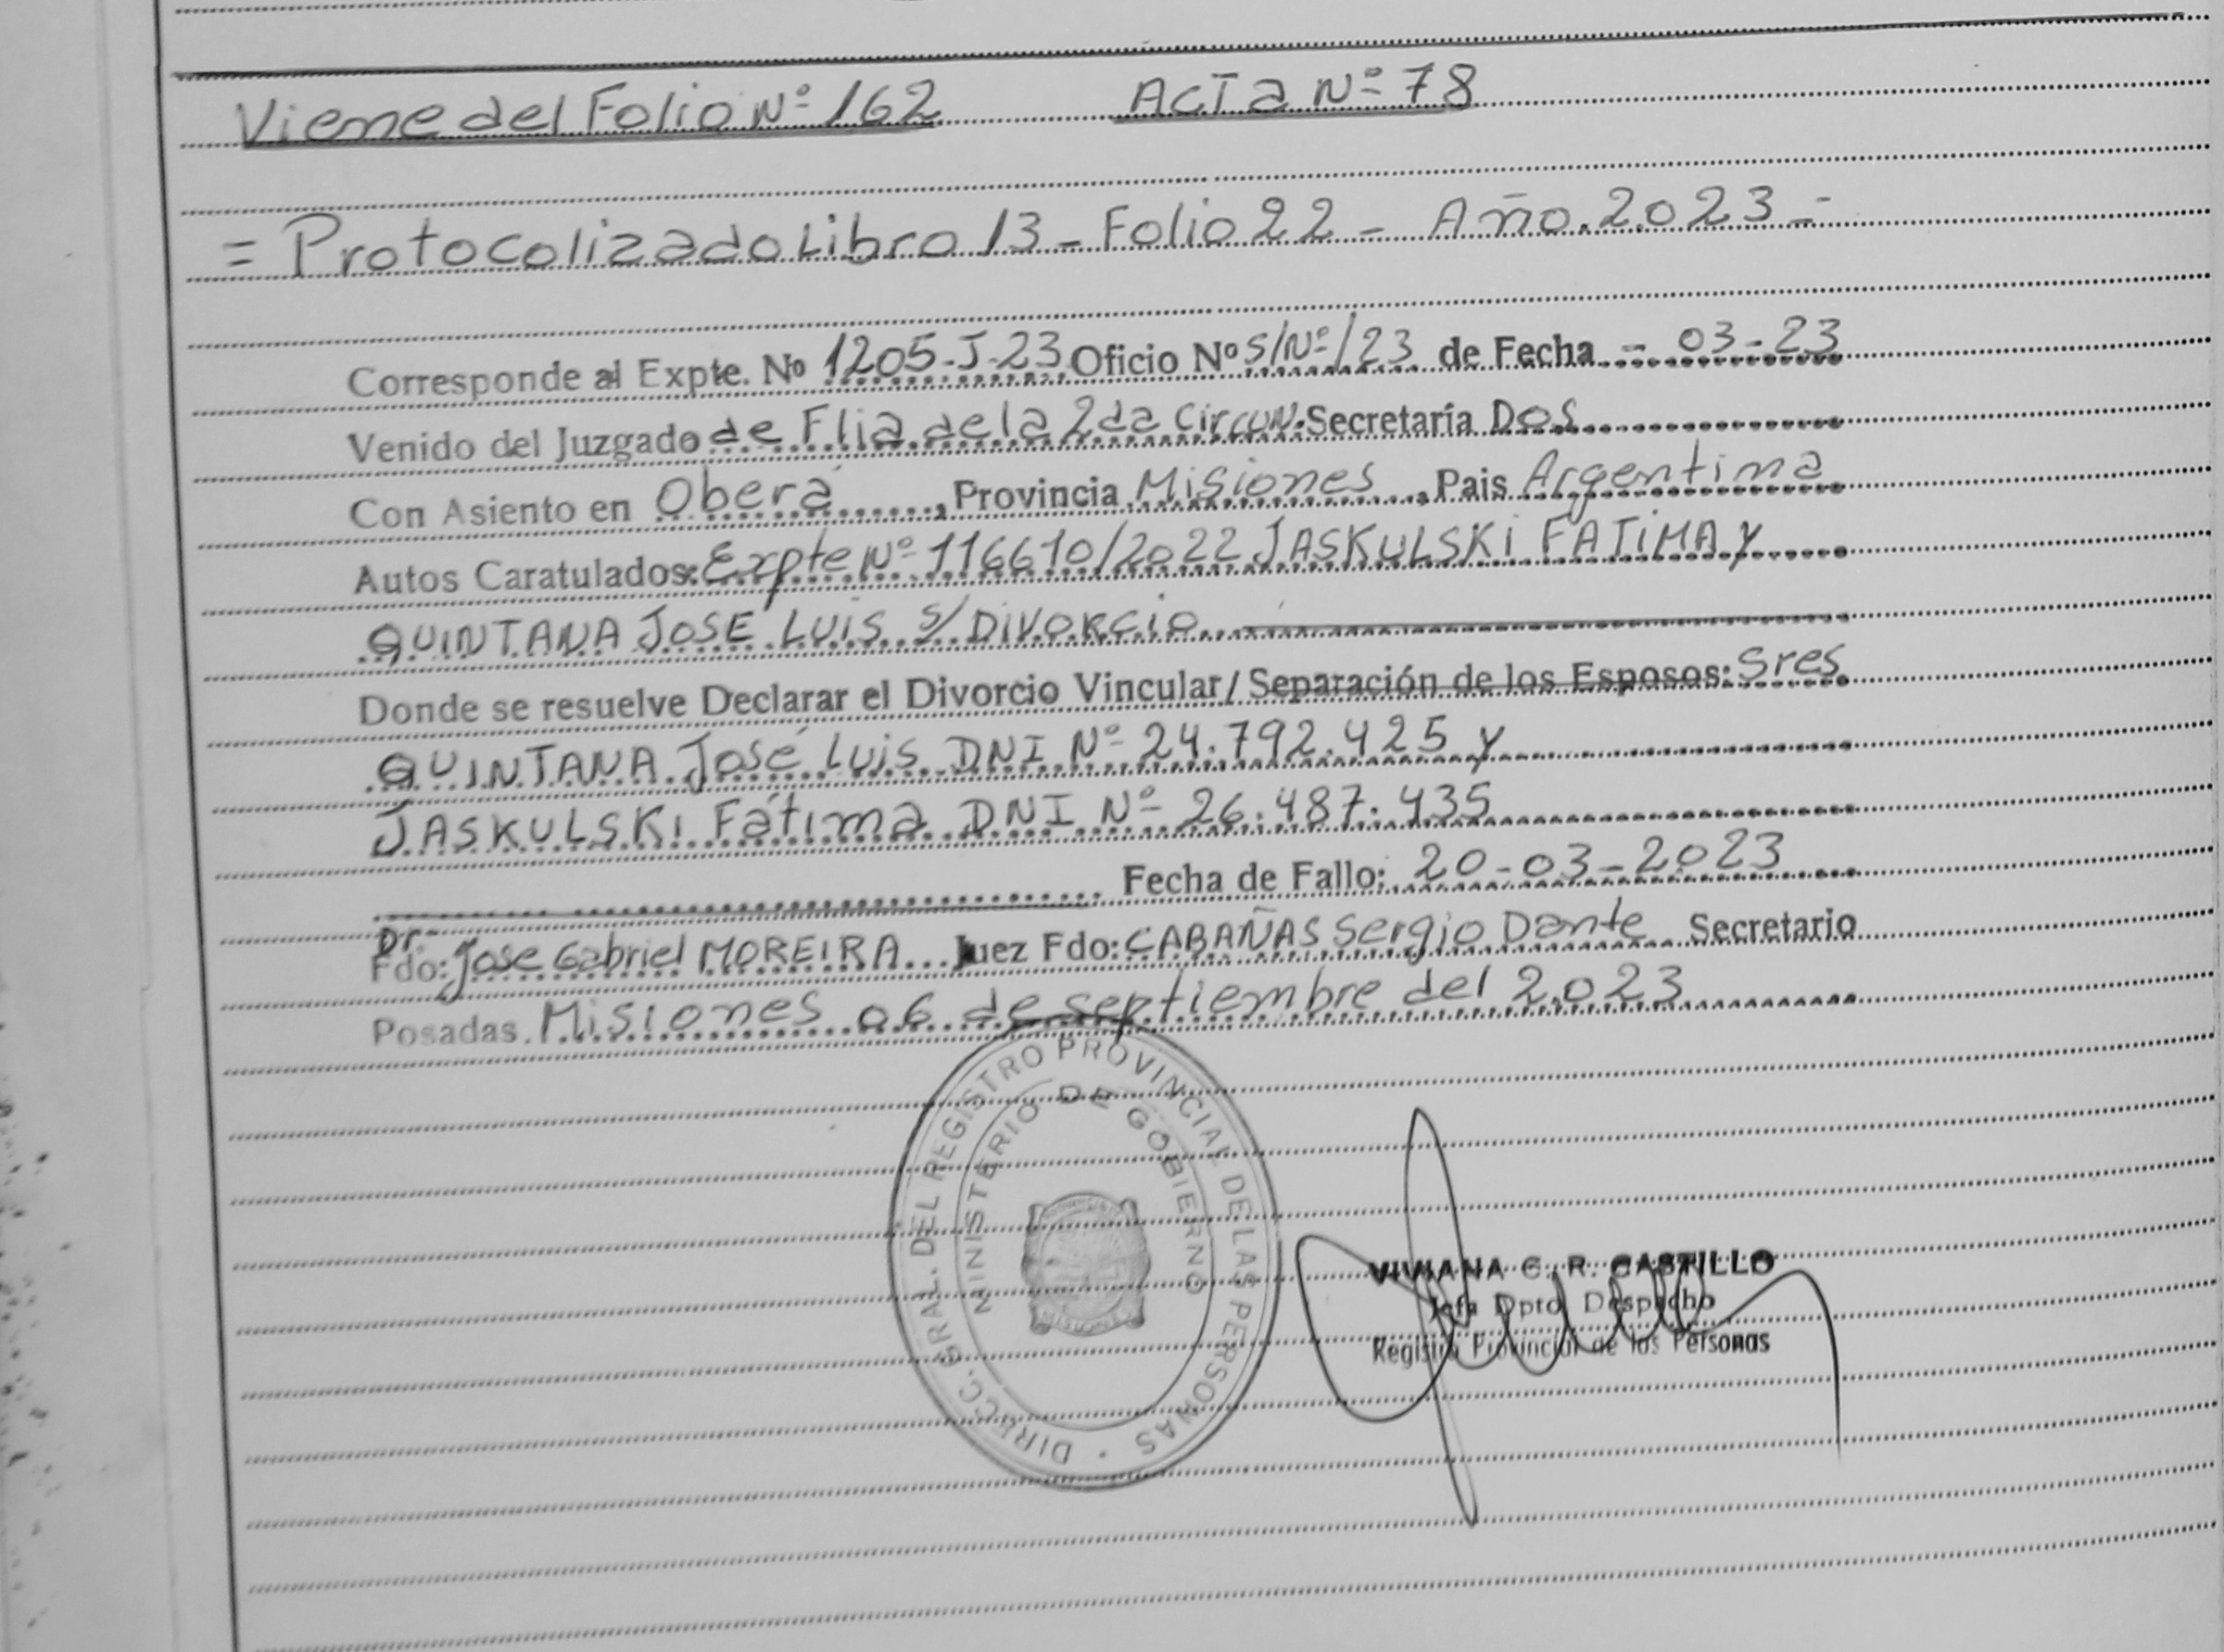 Viene del Folio Nº 162 Acta Nº 78
= Protocolizado Libro 13 - Folio 22 - Año. 2.023 -
Corresponde al Expte. Nº 1205-J-23 Oficio Nº S/Nº/23 de Fecha - 03-23
Venido del Juzgado de Flia de la 2da Circun. Secretaría Dos
Con Asiento en Oberá, Provincia Misiones, Pais Argentina
Autos Caratulados: Expte Nº 116610/2022 JASKULSKI FATIMA y
QUINTANA JOSE LUIS S/DIVORCIO
Donde se resuelve Declarar el Divorcio Vincular/ Separación de los Esposos: Sres
QUINTANA José Luis DNI Nº 24.792.425 y
JASKULSKI Fátima DNI Nº 26.487.435
Fecha de Fallo: 20-03-2023
Dr.
Fdo: Jose Gabriel MOREIRA Juez Fdo: CABAÑAS Sergio Dante Secretario
Posadas. Misiones 06 de septiembre del 2.023
DIRECC. GRAL. DEL REGISTRO PROVINCIAL DE LAS PERSONAS
MINISTERIO DE GOBIERNO
MISIONES
VIVIANA C. R. CASTILLO
Jefa Dpto. Despacho
Registro Provincial de las Personas